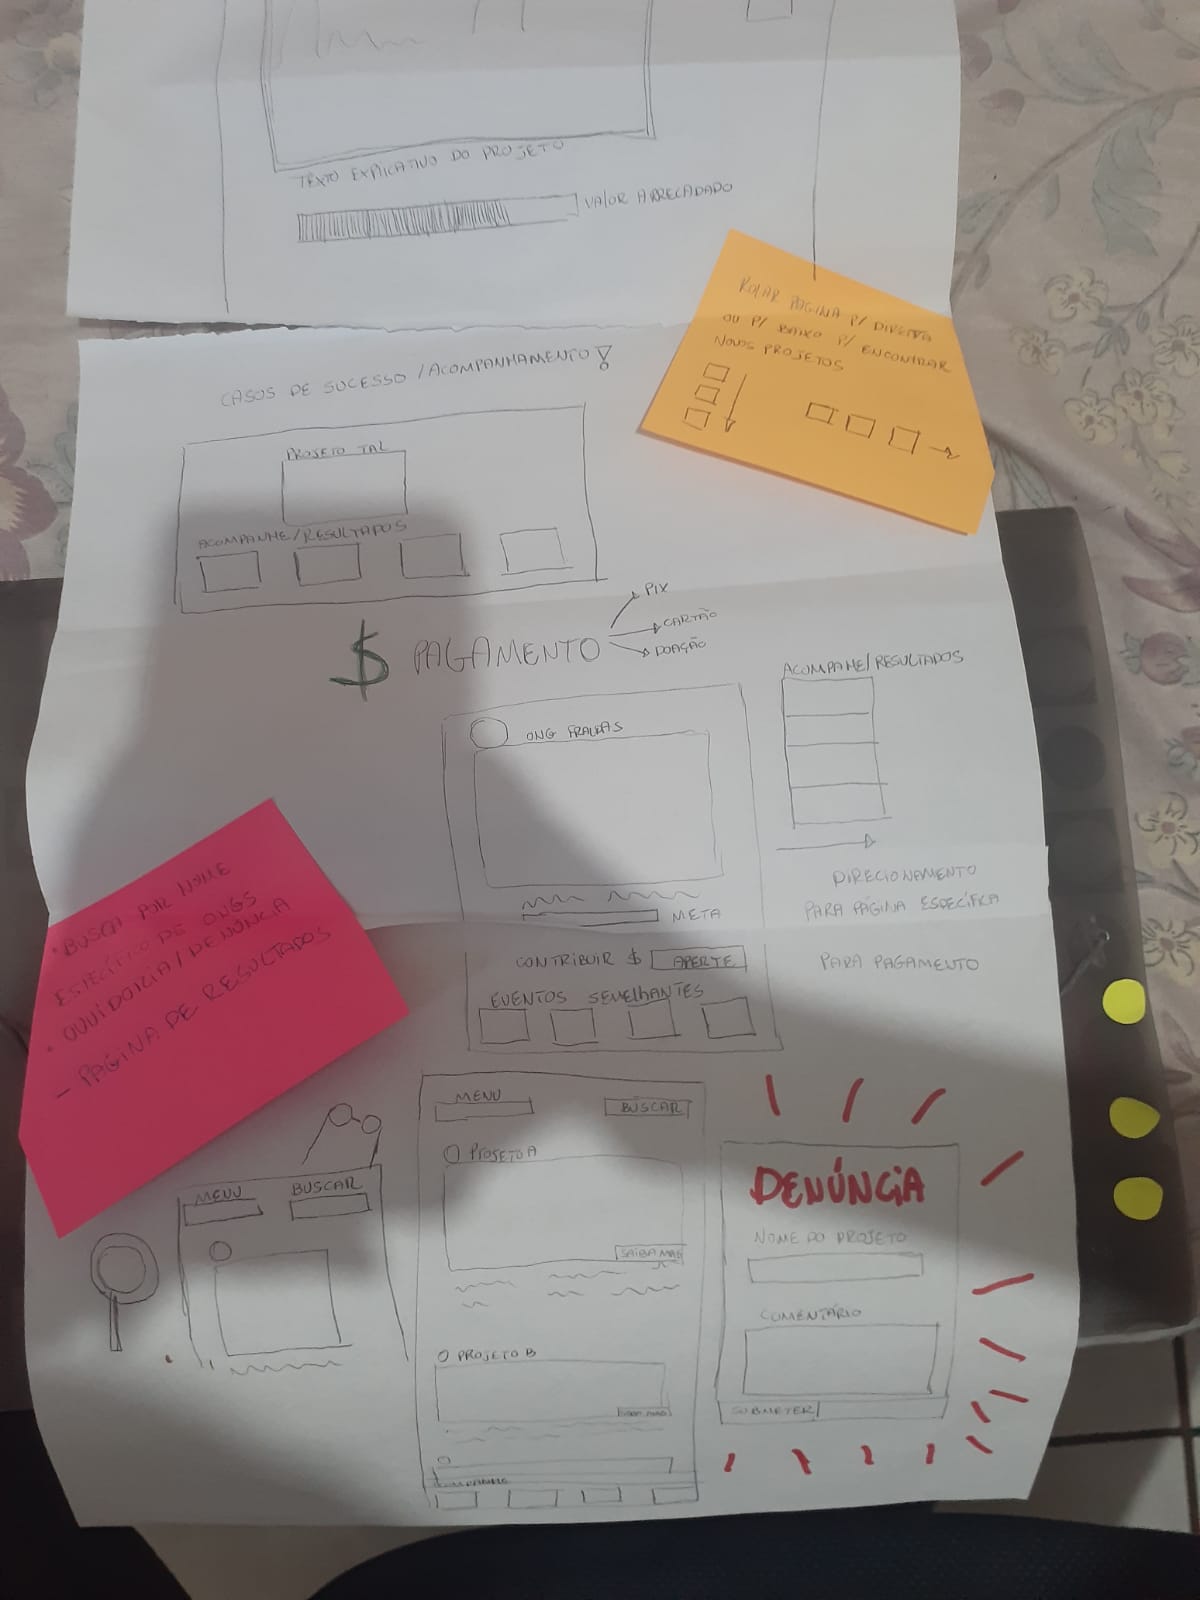 TEXTO EXPLICATIVO DO PROJETO
VALOR ARRECADADO
ROLAR PÁGINA P/ DIREITA
OU P/ BAIXO P/ ENCONTRAR
NOVOS PROJETOS
CASOS DE SUCESSO / ACOMPANHAMENTO!
PROJETO TAL
ACOMPANHE/RESULTADOS
$ PAGAMENTO
PIX
CARTÃO
DOAÇÃO
ACOMPANE/RESULTADOS
ONG FRALDAS
META
DIRECIONAMENTO
PARA PÁGINA ESPECÍFICA
PARA PAGAMENTO
CONTRIBUIR $ APERTE
EVENTOS SEMELHANTES
• BUSCA POR NOME
ESPECÍFICO DE ONGS
• OUVIDORIA/DENÚNCIA
– PÁGINA DE RESULTADOS
MENU
BUSCAR
MENU
BUSCAR
PROJETO A
SAIBA MAIS
PROJETO B
SAIBA MAIS
DENÚNCIA
NOME DO PROJETO
COMENTÁRIO
SUBMETER